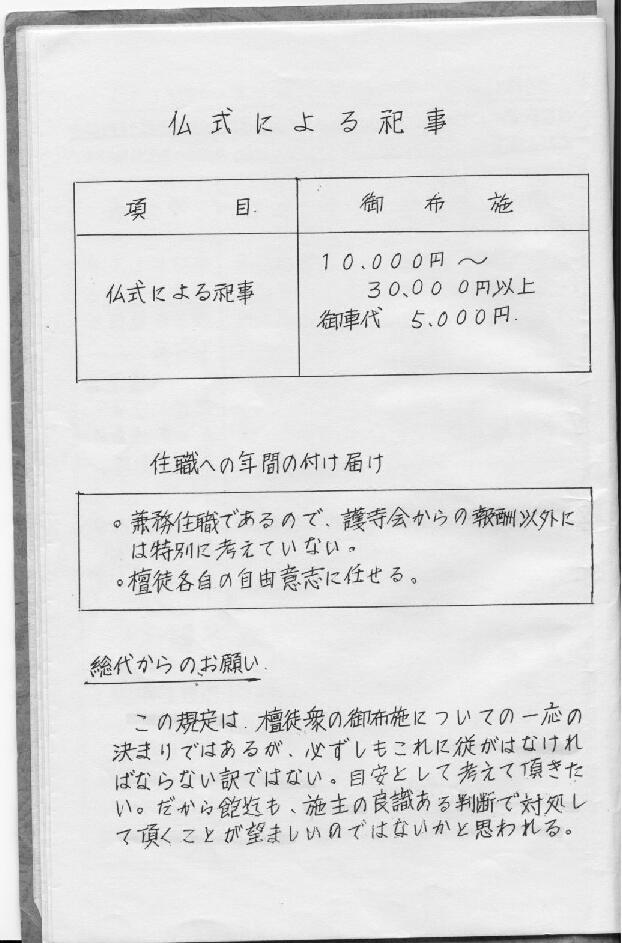 仏式による祀事
項目
御布施
仏式による祀事
10.000円～
30.000円以上
御車代 5.000円.
住職への年間の付け届け
○兼務住職であるので、護寺会からの報酬以外に
は特別に考えていない。
○檀徒各自の自由意志に任せる。
総代からのお願い.
この規定は.檀徒衆の御布施についての一応の
決まりではあるが、必ずしもこれに従がはなけれ
ばならない訳ではない。目安として考えて頂きた
い。だから飽迄も、施主の良識ある判断で対処し
て頂くことが望ましいのではないかと思われる。